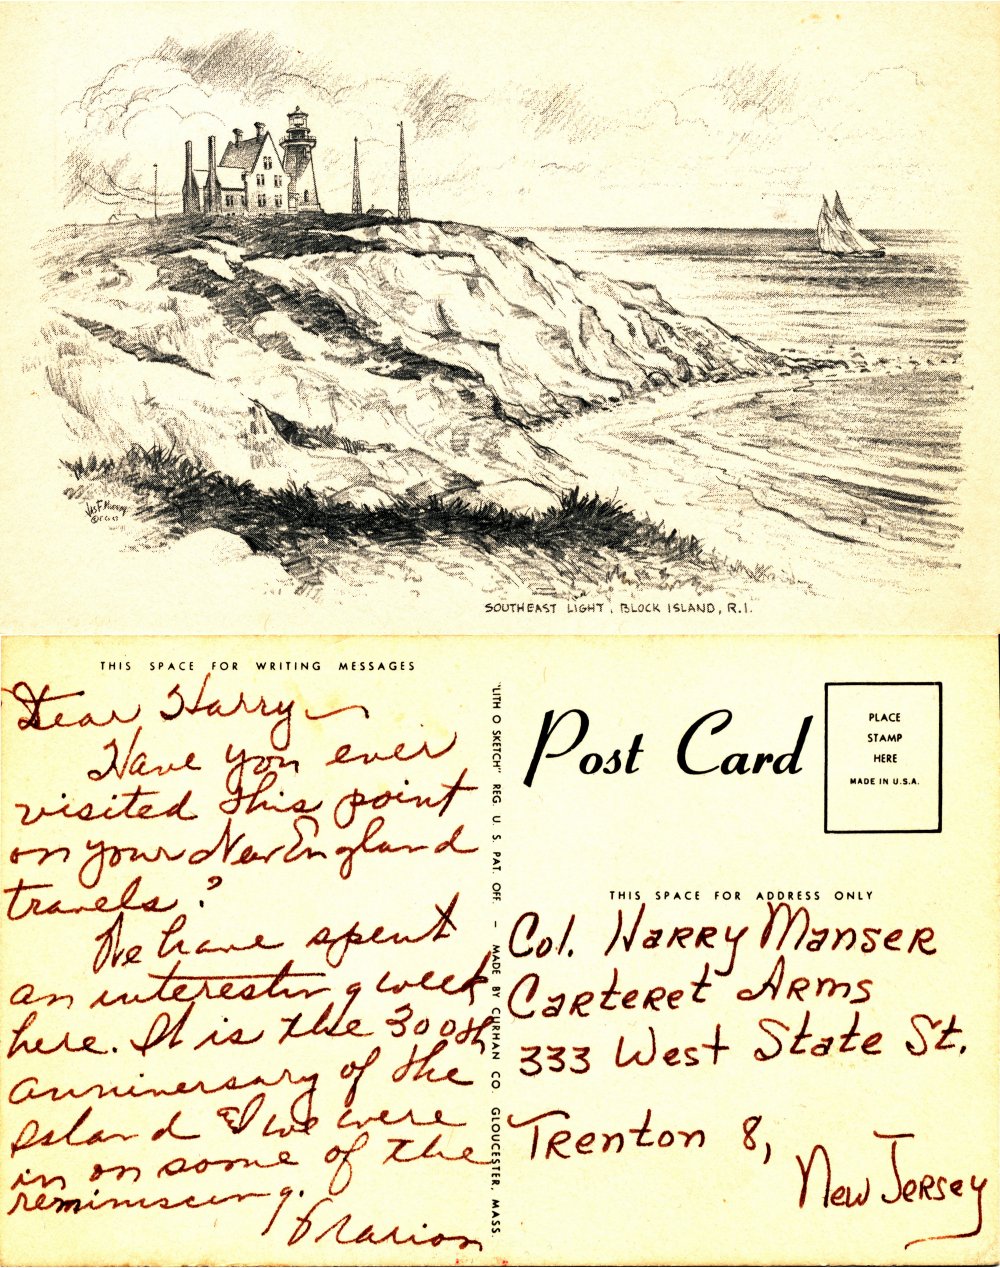 Jas F Murray
SOUTHEAST LIGHT, BLOCK ISLAND, R.I.
THIS SPACE FOR WRITING MESSAGES
Dear Harry
Have you ever
visited this point
on your New England
travels?
We have spent
an interesting week
here. It is the 300th
anniversary of the
Island & we were
in on some of the
reminiscing.
Marion
"LITH O SKETCH" REG. U. S. PAT. OFF. – MADE BY CURHAN CO. GLOUCESTER, MASS.
Post Card
PLACE
STAMP
HERE
MADE IN U.S.A.
THIS SPACE FOR ADDRESS ONLY
Col. Harry Manser
Carteret Arms
333 West State St.
Trenton 8,
New Jersey